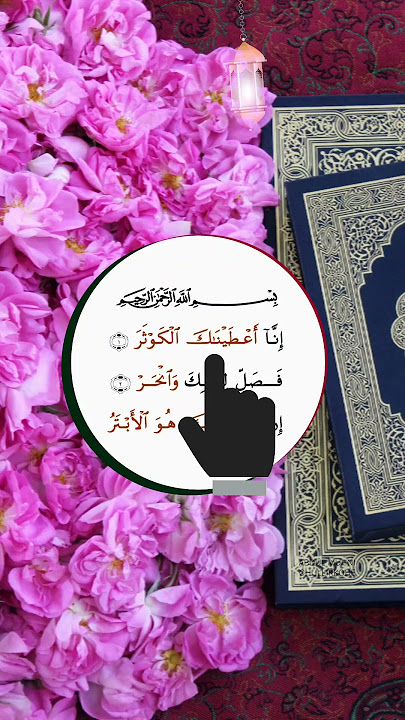 بِسْمِ اللَّهِ الرَّحْمَٰنِ الرَّحِيمِ
إِنَّآ أَعْطَيْنَٰكَ ٱلْكَوْثَرَ ١
فَصَلِّ وَٱنْحَرْ ٢
هُوَ ٱلْأَبْتَرُ